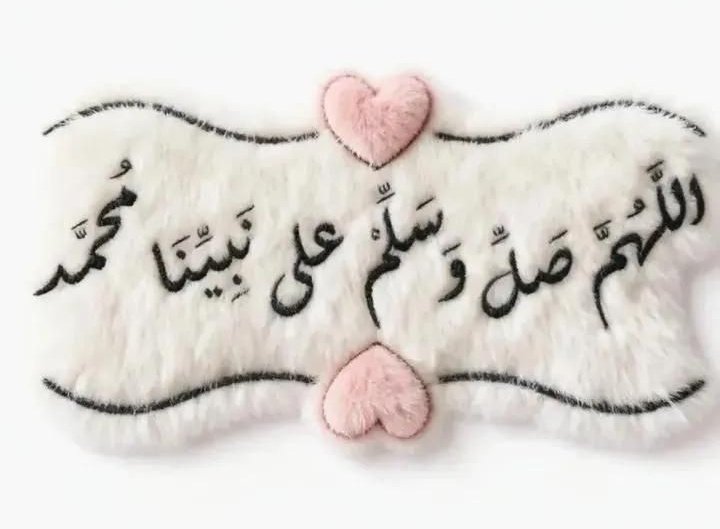 اللَّهُمَّ صَلِّ وَ سَلِّمْ على نَبِيِّنَا مُحمَّد